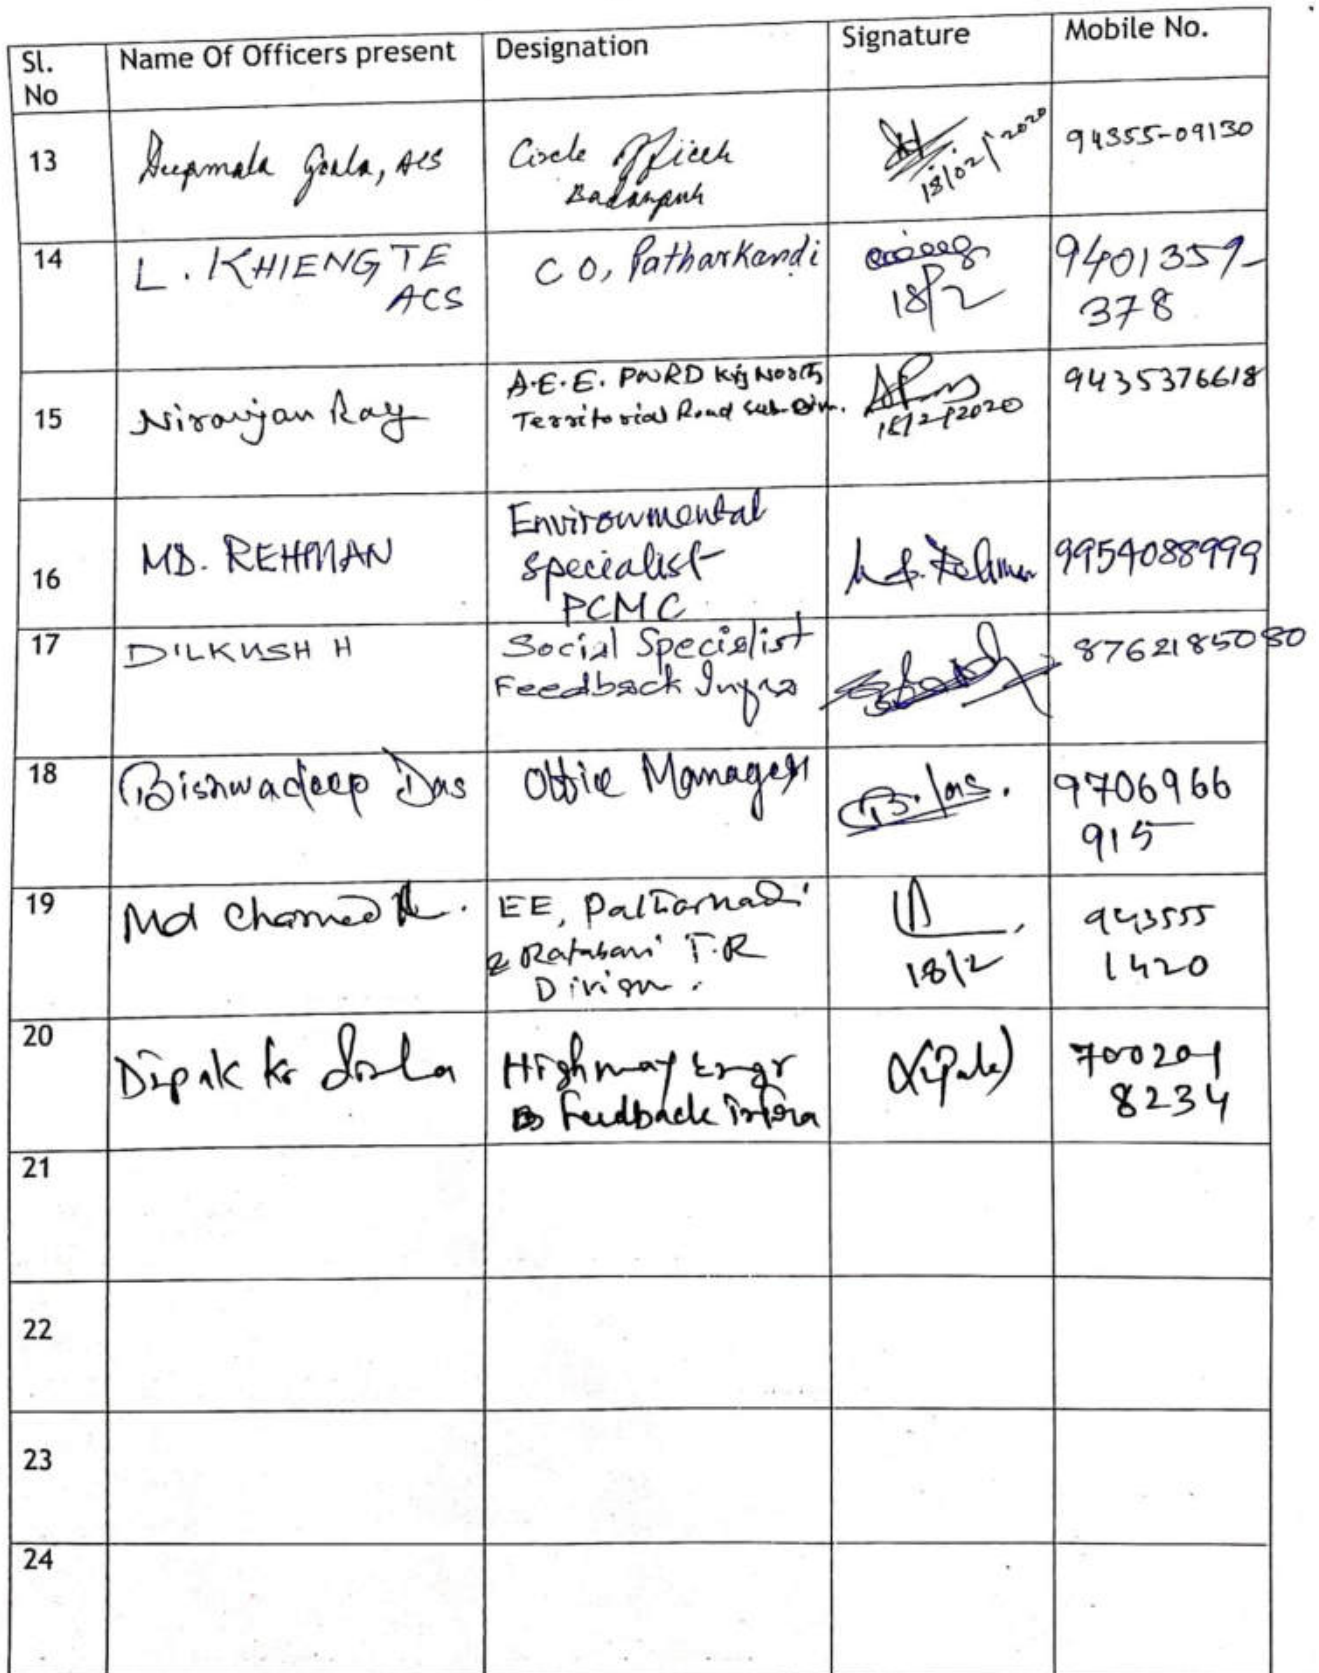 Sl. No Name Of Officers present Designation Signature Mobile No.
13 Deepmala Goala, ACS Circle Officer Badarpur 18/02/2020 94355-09130
14 L. KHIENGTE ACS CO, Patharkandi 18/2 9401359-378
15 Niranjan Ray A.E.E. PWRD Kxj North Territorial Road Sub-Divn. 18/2/2020 9435376618
16 MD. REHMAN Environmental specialist PCMC Md. Rehman 9954088999
17 DILKUSH H Social Specialist Feedback Infra 8762185080
18 Bishwadeep Das Office Manager B. Das. 9706966 915
19 Md EE, & Ratabari T.R Division. 18/2 943555 1420
20 Dipak kr Highway Engr Feedback Infra (Dipak) 700201 8234
21
22
23
24